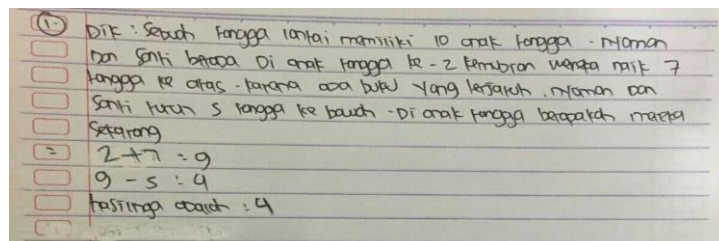 1. Dik : Sebuah tangga lantai memiliki 10 anak tangga. Nyoman
Dan Santi berada Di anak tangga ke-2 kemudian mereka naik 7
tangga ke atas. karena ada buku yang terjatuh. Nyoman Dan
Santi turun 5 tangga ke bawah. Di anak tangga berapakah mereka
Sekarang
= 2+7 = 9
9 - 5 : 4
hasilnya adalah : 4